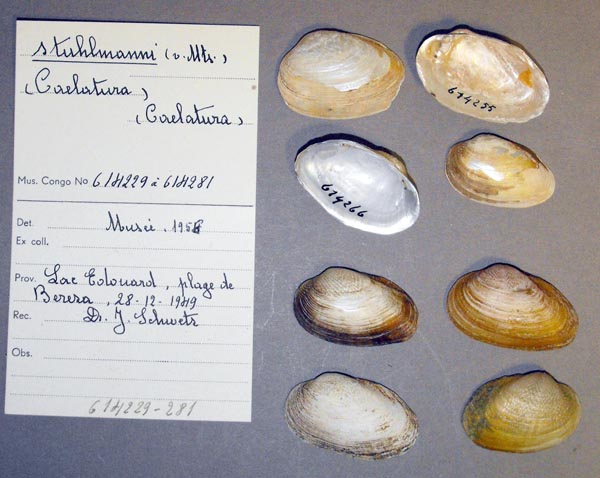 stuhlmanni (v. Mts.)
(Caelatura)
(Caelatura)
Mus. Congo No 614229 à 614281
Det. Musée. 1956
Ex coll.
Prov. Lac Edouard, plage de
Berera, 28-12-1949
Rec. Dr. J. Schwetz
Obs.
614229-281
614255
614266